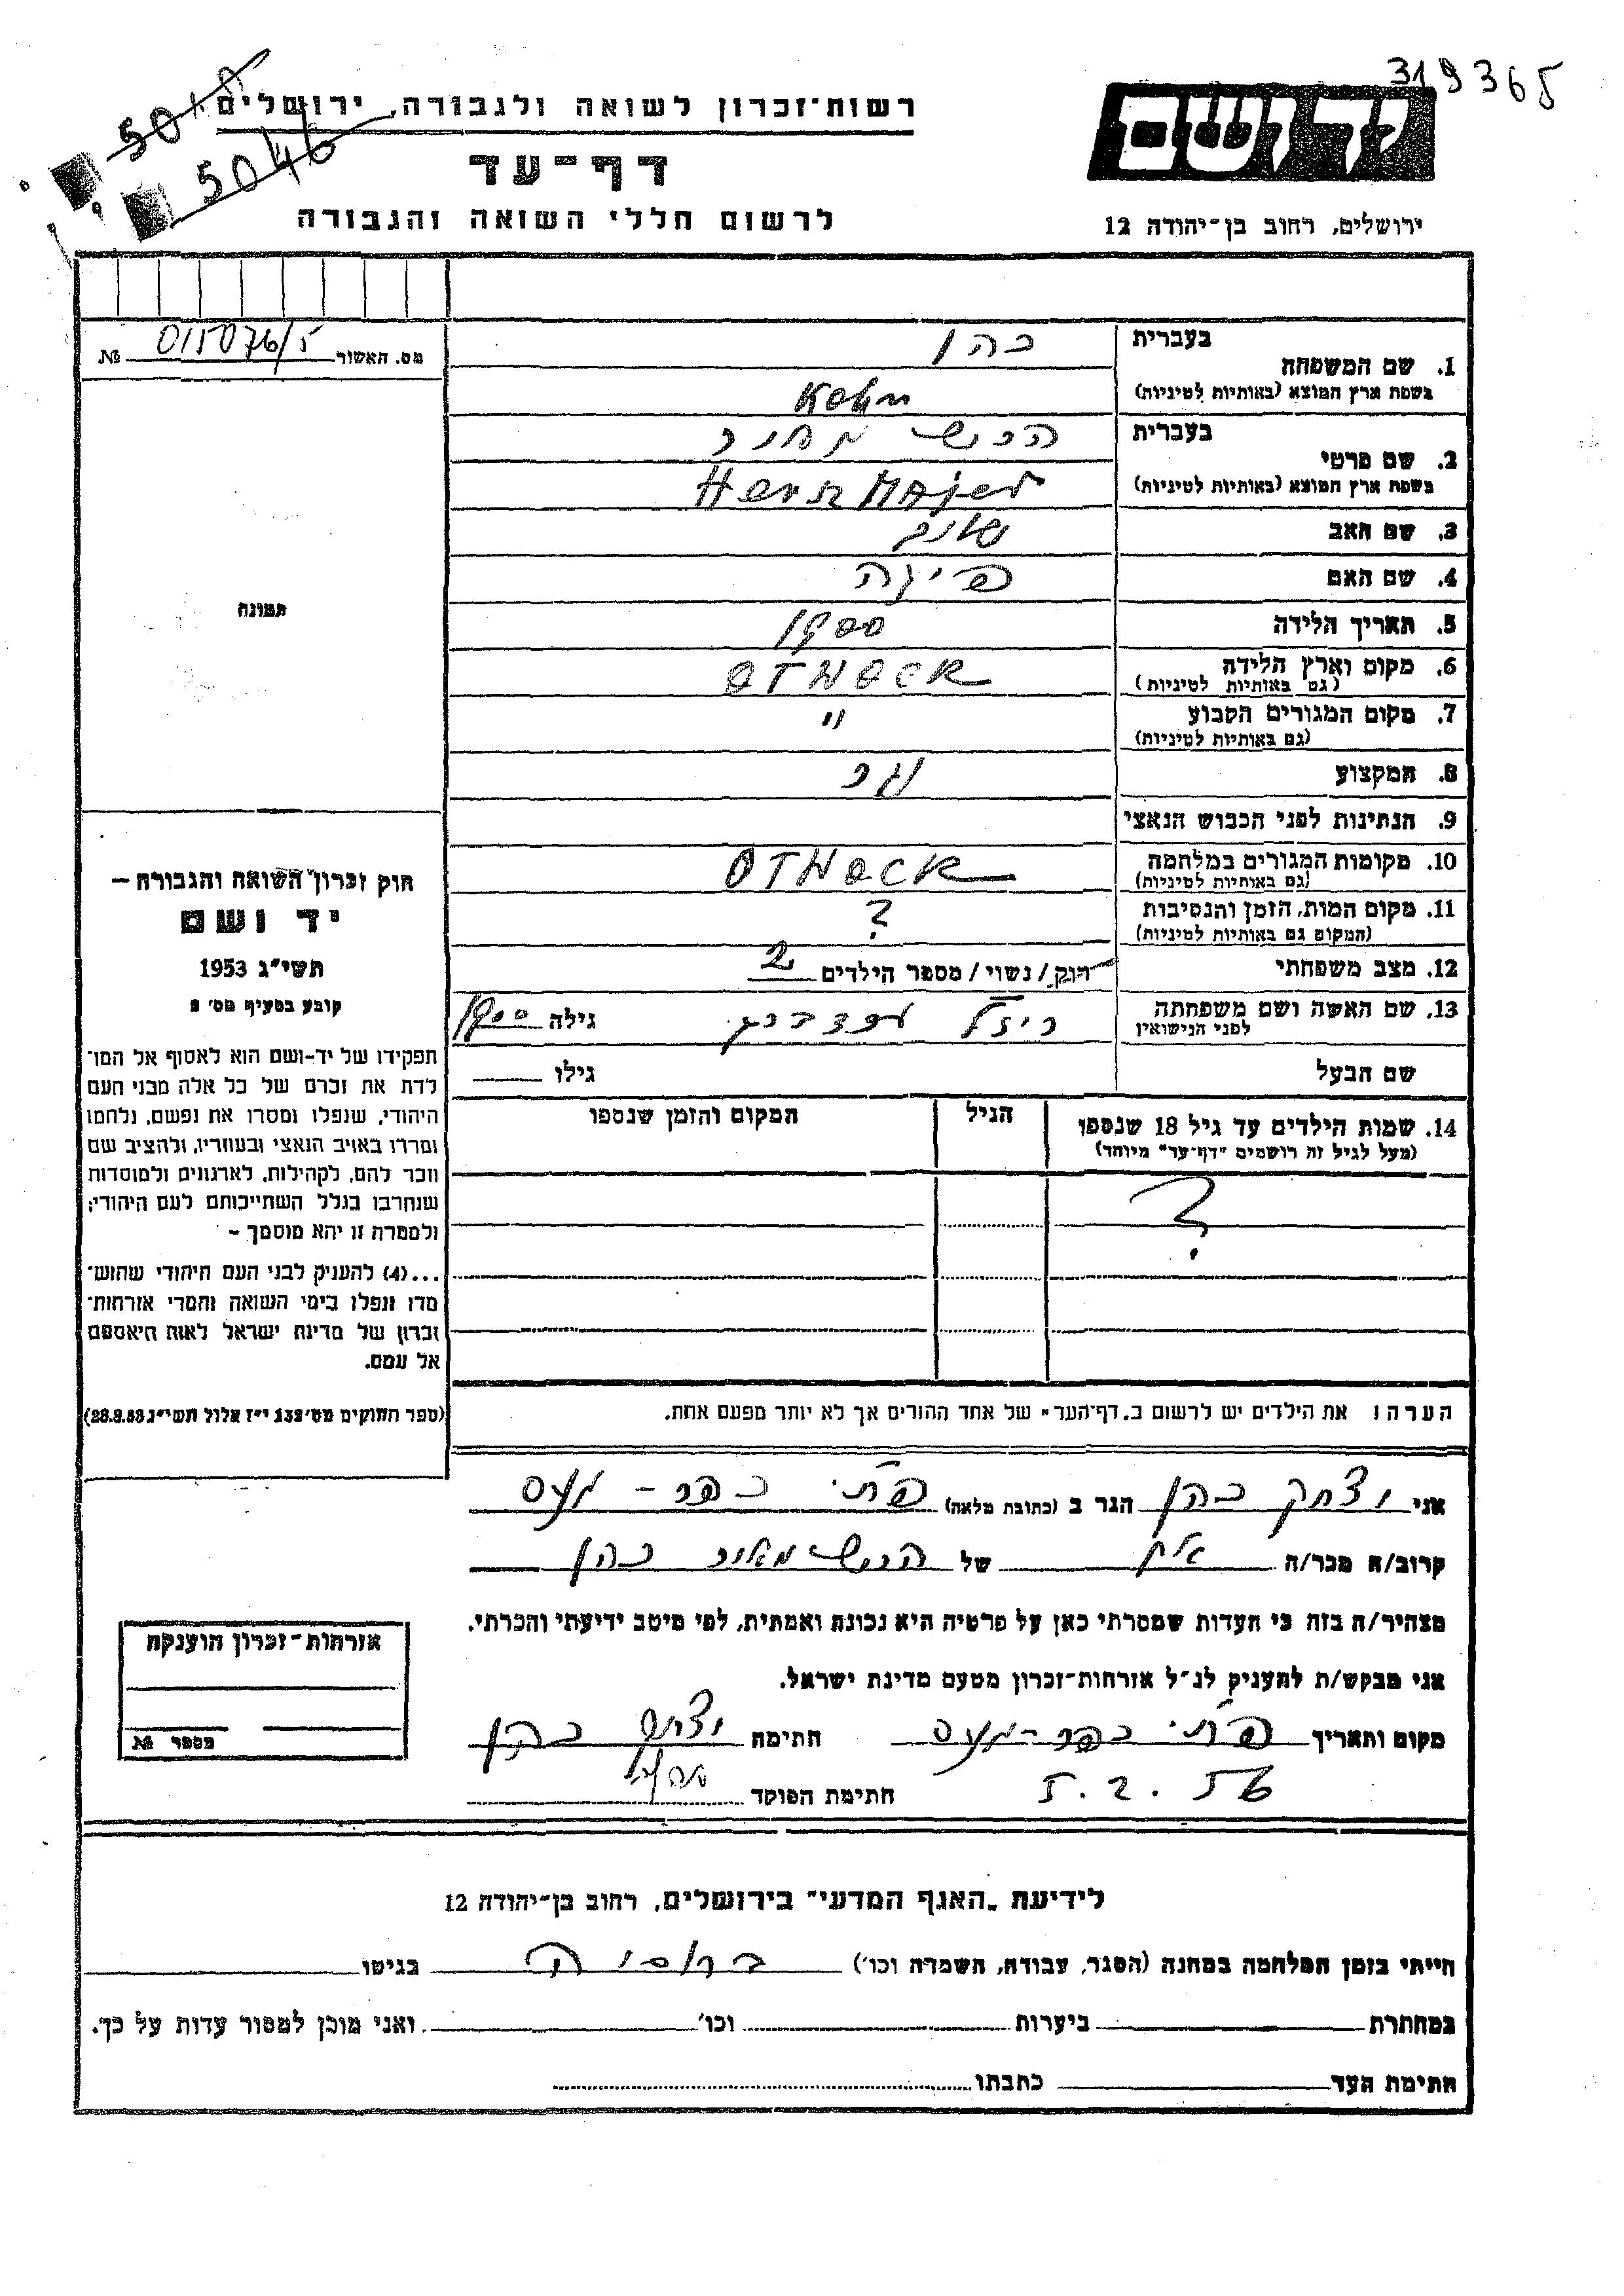 319365
יד ושם
רשות-זכרון לשואה ולגבורה, ירושלים
5046
דף-עד
לרשום חללי השואה והגבורה
ירושלים, רחוב בן-יהודה 12
מס. האשור 015076/5 №
תמונה
בעברית כהן
1. שם המשפחה
בשפת ארץ המוצא (באותיות לטיניות) Kohn
בעברית הרש
2. שם פרטי
בשפת ארץ המוצא (באותיות לטיניות) Hersz Majer
3. שם האב
4. שם האם
5. תאריך הלידה 1900
6. מקום וארץ הלידה OTWOCK
(גם באותיות לטיניות)
7. מקום המגורים הקבוע "
(גם באותיות לטיניות)
8. המקצוע נגר
9. הנתינות לפני הכבוש הנאצי
10. מקומות המגורים במלחמה OTWOCK
(גם באותיות לטיניות)
11. מקום המות, הזמן והנסיבות ?
(המקום גם באותיות לטיניות)
12. מצב משפחתי רווק/נשוי/מספר הילדים 2
13. שם האשה ושם משפחתה גילה 1900
לפני הנישואין
שם הבעל גילו
14. שמות הילדים עד גיל 18 שנספו הגיל המקום והזמן שנספו
(מעל לגיל זה רושמים "דף-עד" מיוחד)
?
הערה: את הילדים יש לרשום ב"דף-העד" של אחד ההורים אך לא יותר מפעם אחת.
חוק זכרון השואה והגבורה –
יד ושם
תשי"ג 1953
קובע בסעיף מס' 2
תפקידו של יד-ושם הוא לאסוף אל המו-
לדת את זכרם של כל אלה מבני העם
היהודי, שנפלו ומסרו את נפשם, נלחמו
ומרדו באויב הנאצי ובעוזריו, ולהציב שם
וזכר להם, לקהילות, לארגונים ולמוסדות
שנחרבו בגלל השתייכותם לעם היהודי;
ולמטרה זו יהא מוסמך –
...(4) להעניק לבני העם היהודי שהוש-
מדו ונפלו בימי השואה והמרי אזרחות-
זכרון של מדינת ישראל לאות היאספם
אל עמם.
(ספר החוקים מס' 132 י"ז אלול תשי"ג 28.8.53)
אני יצחק כהן הגר ב (כתובת מלאה) פ"ת כפר-מעש
קרוב/ה מכר/ה אח של הרש מאיר כהן
מצהיר/ה בזה כי העדות שמסרתי כאן על פרטיה היא נכונה ואמתית, לפי מיטב ידיעתי והכרתי.
אני מבקש/ת להעניק לנ"ל אזרחות-זכרון מטעם מדינת ישראל.
מקום ותאריך פ"ת כפר-מעש חתימה יצחק כהן
5.2.56 חתימת הפוקד
אזרחות-זכרון הוענקה
מספר №
לידיעת "האגף המדעי" בירושלים, רחוב בן-יהודה 12
הייתי בזמן המלחמה במחנה (הסגר, עבודה, השמדה וכו') ברוסיה בגיטו
במחתרת ביערות וכו' ואני מוכן למסור עדות על כך.
חתימת העד כתבתו